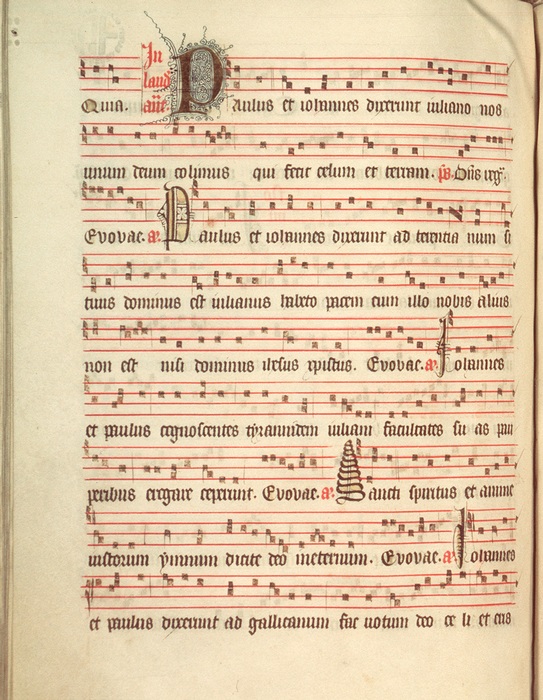 In
laud
Quia. Paulus et iohannes dixerunt iuliano nos
unum deum colimus qui fecit celum et terram. ps. Dns reg.
Evovae. a. Paulus et iohannes dixerunt ad terentia num si
tuus dominus est iulianus habeto pacem cum illo nobis alius
non est nisi dominus ihesus xpistus. Evovae. a. Iohannes
et paulus cognoscentes tyrannidem iuliani facultates su as pau
peribus erogare ceperunt. Evovae. a. Sancti spiritus et anime
iustorum ymnum dicite deo Evovae. a. Iohannes
et paulus dixerunt ad gallicanum fac uotum deo ce li et eris